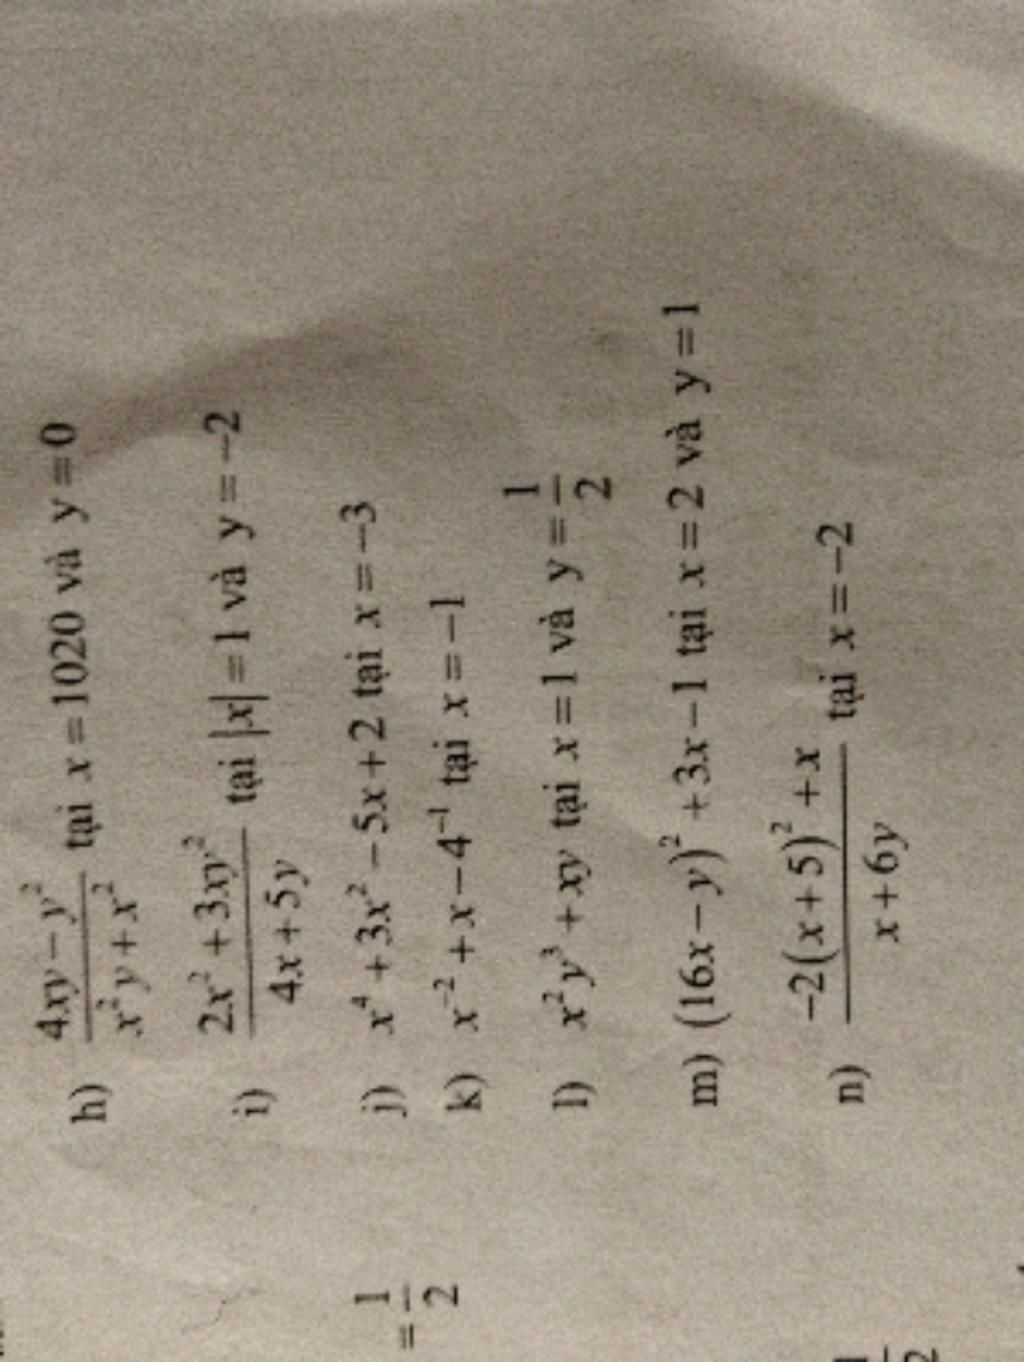 h) \frac{4xy-y^2}{x^2y+x^2} tại x=1020 và y=0
i) \frac{2x^2+3xy^2}{4x+5y} tại |x|=1 và y=-2
j) x^4+3x^2-5x+2 tại x=-3
k) x^{-2}+x-4^{-1} tại x=-1
l) x^2y^3+xy tại x=1 và y=\frac{1}{2}
m) (16x-y)^2+3x-1 tại x=2 và y=1
n) \frac{-2(x+5)^2+x}{x+6y} tại x=-2
=\frac{1}{2}